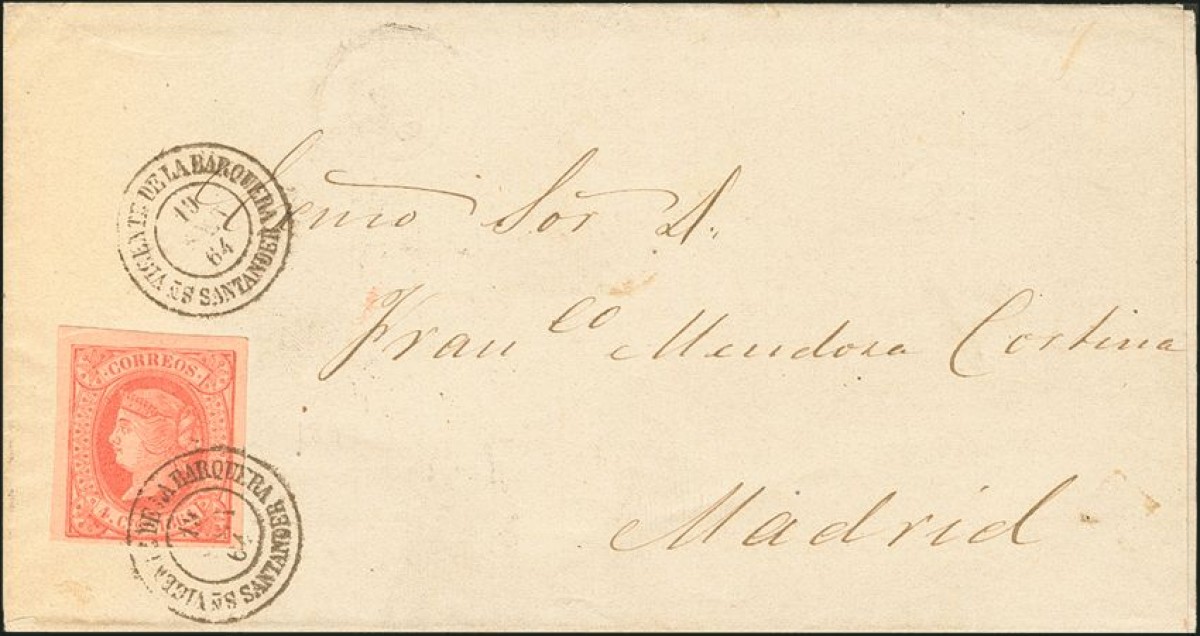 Sn VICENTE DE LA BARQUERA
19
64
SANTANDER
Sor D.
Franco Mendoza Cortina
Madrid
CORREOS
Sn VICENTE DE LA BARQUERA
19
64
SANTANDER